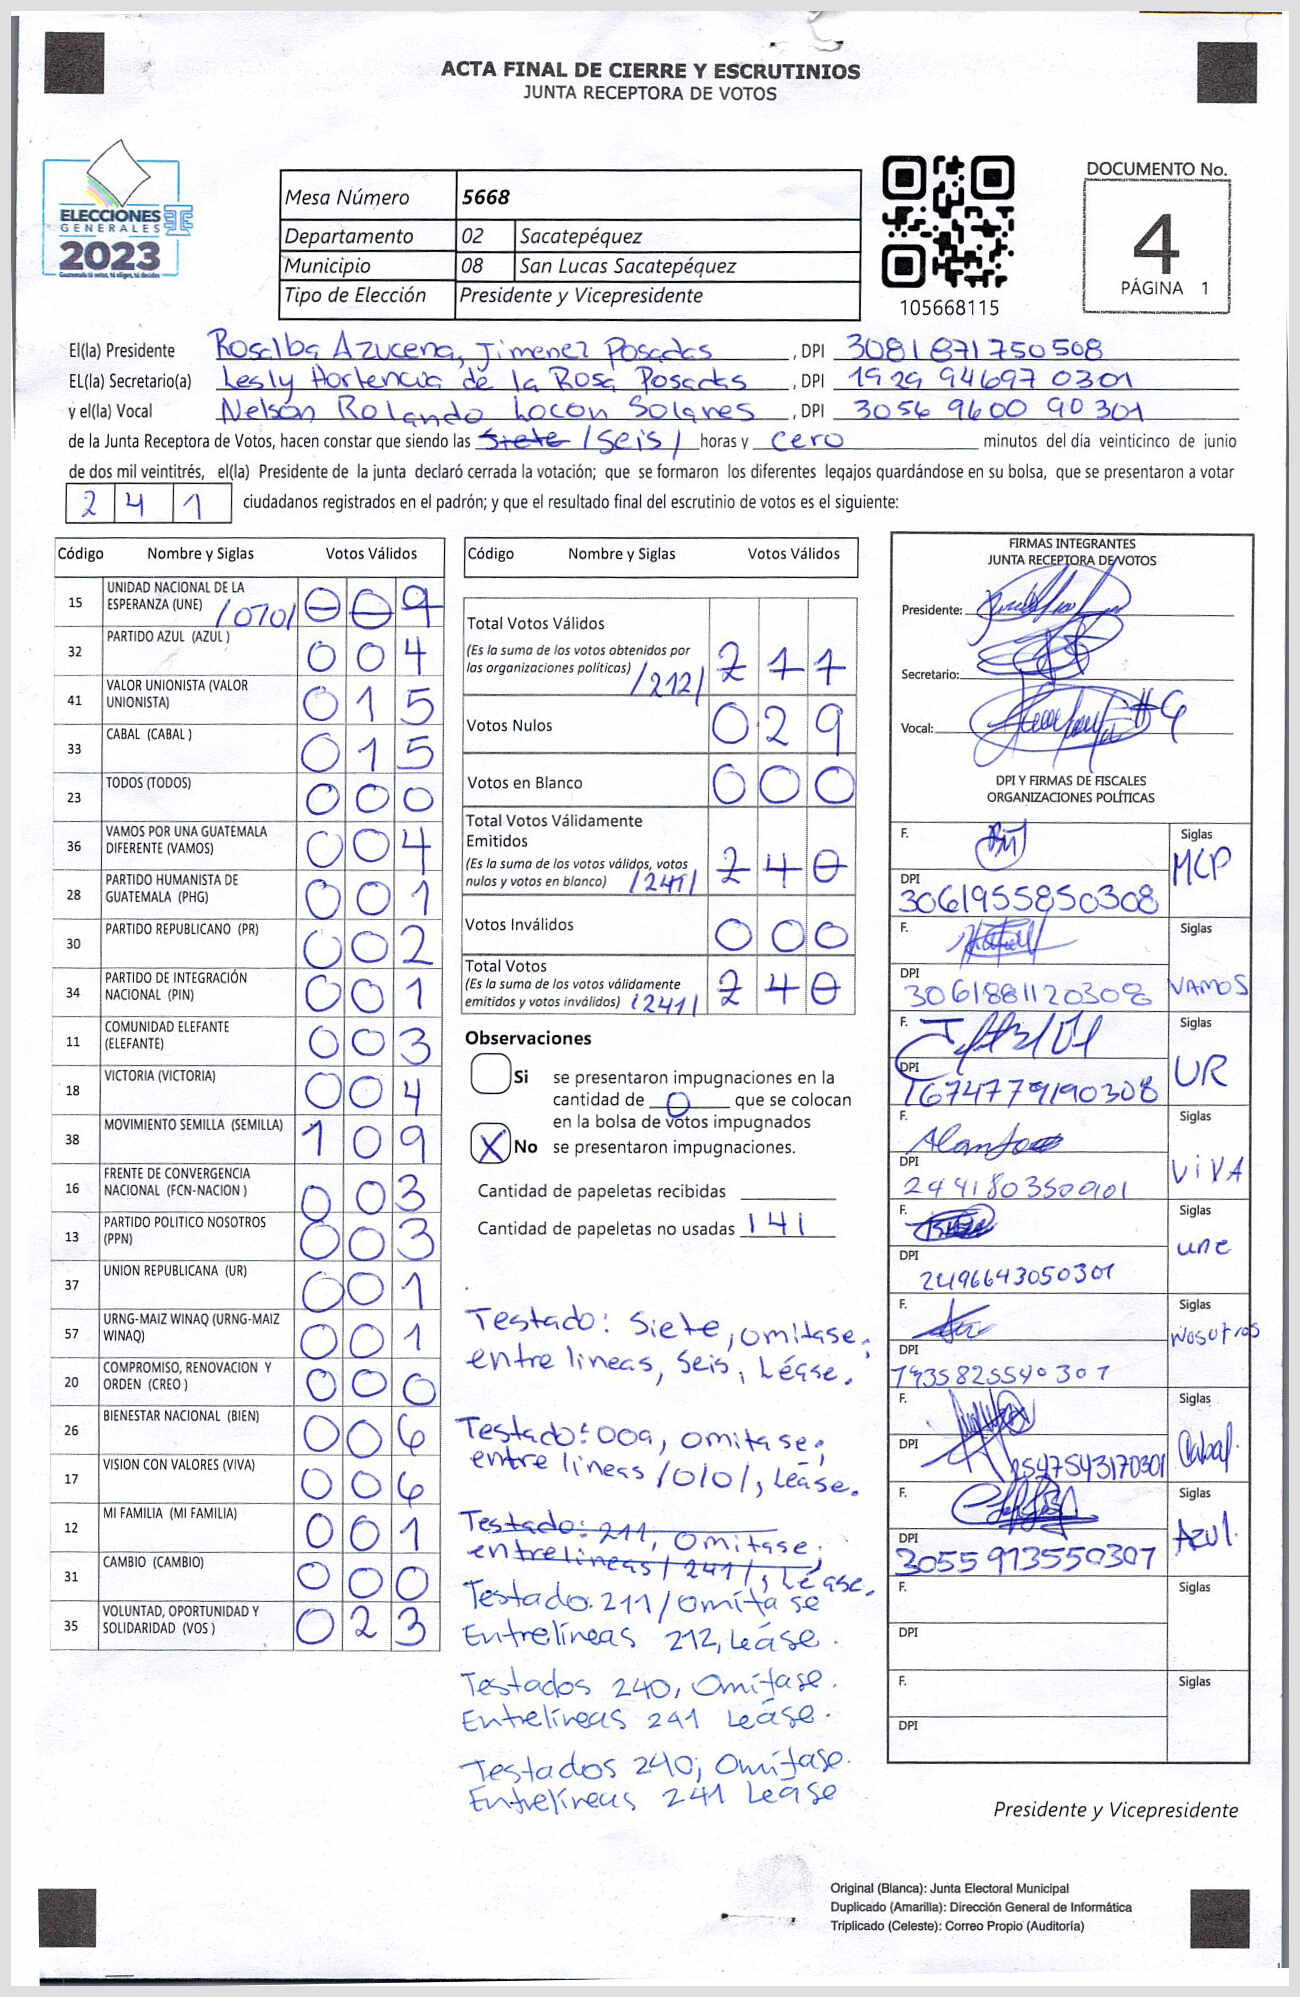 ACTA FINAL DE CIERRE Y ESCRUTINIOS
JUNTA RECEPTORA DE VOTOS
ELECCIONES
GENERALES
2023
Guatemala tú votas, tú eliges, tú decides
Mesa Número 5668
Departamento 02 Sacatepéquez
Municipio 08 San Lucas Sacatepéquez
Tipo de Elección Presidente y Vicepresidente
105668115
DOCUMENTO No.
4
PÁGINA 1
El(la) Presidente Rosalba Azucena, Jimenez Posadas, DPI 3081871750508
EL(la) Secretario(a) Lesly Hortencia de la Rosa Posadas, DPI 1929 94697 0301
y el(la) Vocal Nelson Rolando Locon Solares, DPI 3056 9600 90301
de la Junta Receptora de Votos, hacen constar que siendo las Siete /seis/ horas y cero minutos del día veinticinco de junio
de dos mil veintitrés, el(la) Presidente de la junta declaró cerrada la votación; que se formaron los diferentes legajos guardándose en su bolsa, que se presentaron a votar
2 4 1 ciudadanos registrados en el padrón; y que el resultado final del escrutinio de votos es el siguiente:
Código Nombre y Siglas Votos Válidos
15 UNIDAD NACIONAL DE LA
ESPERANZA (UNE) /010/ 0 0 9
32 PARTIDO AZUL (AZUL ) 0 0 4
41 VALOR UNIONISTA (VALOR
UNIONISTA) 0 1 5
33 CABAL (CABAL ) 0 1 5
23 TODOS (TODOS) 0 0 0
36 VAMOS POR UNA GUATEMALA
DIFERENTE (VAMOS) 0 0 4
28 PARTIDO HUMANISTA DE
GUATEMALA (PHG) 0 0 1
30 PARTIDO REPUBLICANO (PR) 0 0 2
34 PARTIDO DE INTEGRACIÓN
NACIONAL (PIN) 0 0 1
11 COMUNIDAD ELEFANTE
(ELEFANTE) 0 0 3
18 VICTORIA (VICTORIA) 0 0 4
38 MOVIMIENTO SEMILLA (SEMILLA) 1 0 9
16 FRENTE DE CONVERGENCIA
NACIONAL (FCN-NACION ) 0 0 3
13 PARTIDO POLITICO NOSOTROS
(PPN) 0 0 3
37 UNION REPUBLICANA (UR) 0 0 1
57 URNG-MAIZ WINAQ (URNG-MAIZ
WINAQ) 0 0 1
20 COMPROMISO, RENOVACION Y
ORDEN (CREO ) 0 0 0
26 BIENESTAR NACIONAL (BIEN) 0 0 6
17 VISION CON VALORES (VIVA) 0 0 6
12 MI FAMILIA (MI FAMILIA) 0 0 1
31 CAMBIO (CAMBIO) 0 0 0
35 VOLUNTAD, OPORTUNIDAD Y
SOLIDARIDAD (VOS ) 0 2 3
Código Nombre y Siglas Votos Válidos
Total Votos Válidos
(Es la suma de los votos obtenidos por
las organizaciones políticas) /212/ 2 1 1
Votos Nulos 0 2 9
Votos en Blanco 0 0 0
Total Votos Válidamente
Emitidos
(Es la suma de los votos válidos, votos
nulos y votos en blanco) /241/ 2 4 0
Votos Inválidos 0 0 0
Total Votos
(Es la suma de los votos válidamente
emitidos y votos inválidos) /241/ 2 4 0
Observaciones
Si se presentaron impugnaciones en la
cantidad de 0 que se colocan
en la bolsa de votos impugnados
X No se presentaron impugnaciones.
Cantidad de papeletas recibidas
Cantidad de papeletas no usadas 141
Testado: Siete, omitase;
entre lineas, seis, Léase.
Testado: 009, omitase;
entre lineas /010/, Léase.
Testado: 211, Omitase.
entrelineas /241/, Léase.
Testado. 211/Omíta se
Entrelíneas 212, Leáse.
Testados 240, Omítase.
Entrelíneas 241 Leáse.
Testados 240; Omítase.
Entrelíneas 241 Leáse
FIRMAS INTEGRANTES
JUNTA RECEPTORA DE VOTOS
Presidente:
Secretario:
Vocal:
DPI Y FIRMAS DE FISCALES
ORGANIZACIONES POLÍTICAS
F. Siglas
MCP
DPI
3061955850308
F. Siglas
DPI
3061881120308 VAMOS
F. Siglas
UR
DPI
1674779190308
F. Siglas
DPI VIVA
2441803500901
F. Siglas
une
DPI
2496643050301
F. Siglas
Nosotros
DPI
1935825540301
F. Siglas
Cabal.
DPI
2547543170301
F. Siglas
Azul.
DPI
3055973550307
F. Siglas
DPI
F. Siglas
DPI
Presidente y Vicepresidente
Original (Blanca): Junta Electoral Municipal
Duplicado (Amarilla): Dirección General de Informática
Triplicado (Celeste): Correo Propio (Auditoría)